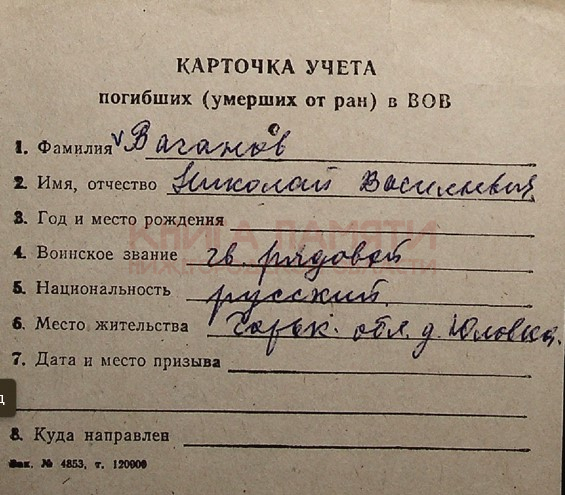 КАРТОЧКА УЧЕТА
погибших (умерших от ран) в ВОВ
1. Фамилия Ваганов
2. Имя, отчество Николай Васильевич
3. Год и место рождения
КНИГА ПАМЯТИ
4. Воинское звание гв. рядовой
НИЖЕГОРОДСКОЙ ОБЛАСТИ
5. Национальность русский
6. Место жительства Горьк. обл. д. Юловка.
7. Дата и место призыва
8. Куда направлен
Зак. № 4853, т. 120000